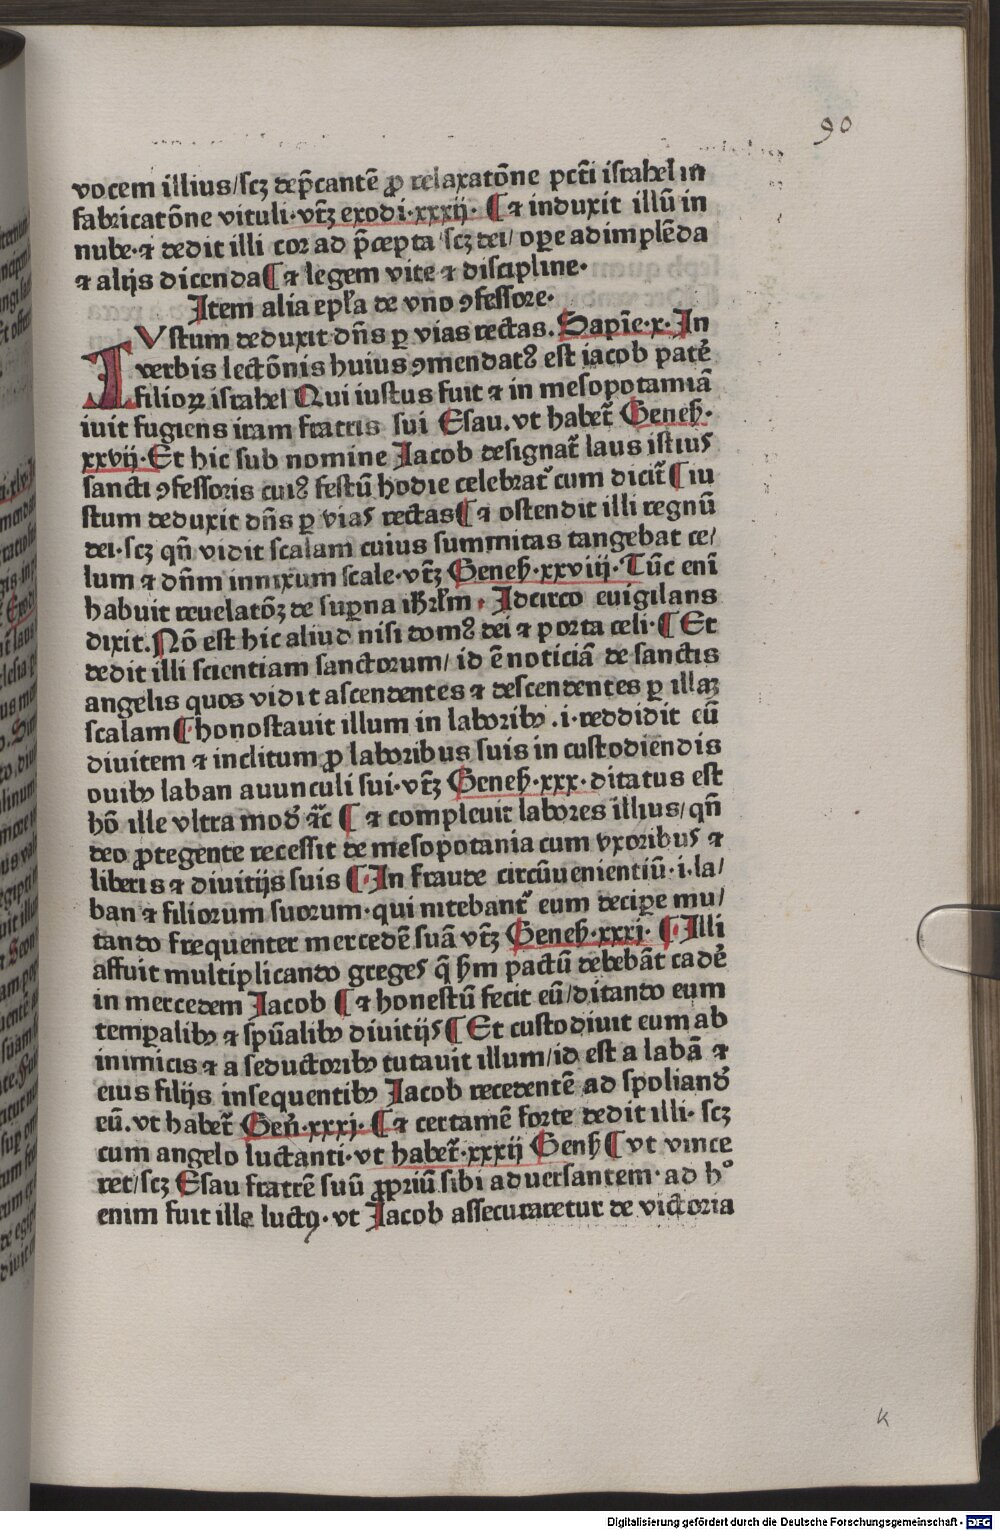 90
vocem illius/scꝫ dep̄cantē ꝓ relaxatōne pcti̅ israhel in
fabricatōne vituli·vtꝫ̄ exodi·xxxij· ¶ ⁊ induxit illū in
nube·⁊ dedit illi cor ad p̄cepta/scꝫ dei/ oꝑe adimplēda
⁊ alijs dicenda ¶ ⁊ legem vite ⁊ discipline·
Item alia epl̄a de vno ꝯfessore·
IVstum deduxit dn̄s ꝑ vias rectas. Sapīe·x· In
verbis lectōnis huius ꝯmendatꝰ est iacob pat̄
filioꝝ israhel Qui iustus fuit ⁊ in mesopotamiā
iuit fugiens iram fratris sui Esau. vt habet̄ Geneß·
xxvij· Et hic sub nomine Jacob designat̄ laus istius
sancti ꝯfessoris cuiꝰ festū hodie celebrat̄ cum dicit̄ ¶ iu
stum deduxit dn̄s ꝑ vias rectas ¶ ⁊ ostendit illi regnū
dei·scꝫ qn̄ vidit scalam cuius summitas tangebat ce/
lum ⁊ dn̄m innixum scale·vtꝫ̄ Geneß·xxviij· Tūc eni̅
habuit reuelatōꝫ de suꝑna ihr̄lm · Idcirco euigilans
dixit. Nō est hic aliud nisi domꝰ dei ⁊ porta celi· ¶ Et
dedit illi scientiam sanctorum/ id ē noticiā de sanctis
angelis quos vidit ascendentes ⁊ descendentes ꝑ illaꝫ
scalam ¶ honestauit illum in laboribꝰ .i· reddidit eū
diuitem ⁊ inclitum ꝓ laboribus suis in custodiendis
ouibꝰ laban auunculi sui·vtꝫ̄ Geneß·xxx· ditatus est
hō ille vltra modū ⁊c̄ ¶ ⁊ compleuit labores illius/ qn̄
deo ꝓtegente recessit de mesopotania cum vxoribus ⁊
liberis ⁊ diuitijs suis ¶ In fraude circūuenientiū·i·la/
ban ⁊ filiorum suorum·qui nitebant̄ eum deciꝑe mu/
tando frequenter mercedē suā vtꝫ̄ Geneß·xxxi· ¶ Illi
affuit multiplicando greges q̄ ẜm pactū debebāt cadē
in mercedem Jacob ¶ ⁊ honestū fecit eū/ditando eum
temꝑalibꝰ ⁊ spūalibꝰ diuitijs ¶ Et custodiuit eum ab
inimicis ⁊ a seductoribꝰ tutauit illum/id est a labā ⁊
eius filijs insequentibꝰ Jacob recedentē ad spoliandū
eū. vt habet̄ Gen̄·xxxj· ¶ ⁊ certamē forte dedit illi· scꝫ
cum angelo luctanti·vt habet̄·xxxij Genß ¶ vt vince
ret/scꝫ Esau fratrē suū ꝓpriū sibi aduersantem· ad hͦ
enim fuit ille luctꝰ· vt Jacob assecuraretur de victoria
k
Digitalisierung gefördert durch die Deutsche Forschungsgemeinschaft - DFG